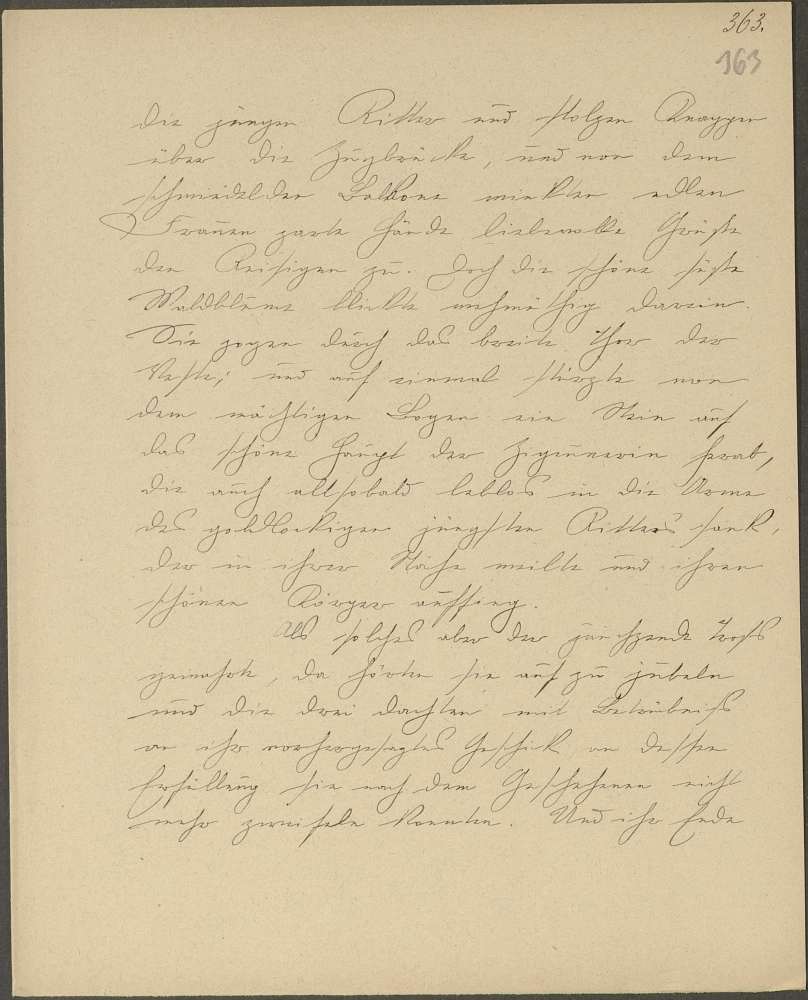 363.
163
die jungen Ritter und stolzen Knappen
über die Zugbrücke, und von dem
der Balkone winkten edlen
Frauen zarte Hände liebevolle Grüße
den Reisigen zu. Doch die schöne süße
Waldblume blickte wehmüthig darein.
Sie zogen durch das breite Thor der
Veste; und auf einmal stürzte von
dem mächtigen Bogen ein Stein auf
das schöne Haupt der Zigeunerin herab,
die auch allsobald leblos in die Arme
des goldlockigen jüngsten Ritters sank,
der in ihrer Nähe weilte und ihren
schönen Körper auffing.
Als solches aber der jauchzende Troß
gewahrte, da hörten sie auf zu jubeln
und die drei dachten mit Betrübniß
an ihr vorhergesagtes Geschick, an dessen
Erfüllung sie nach dem Geschehenen nicht
mehr zweifeln konnten. Und ihr Ende